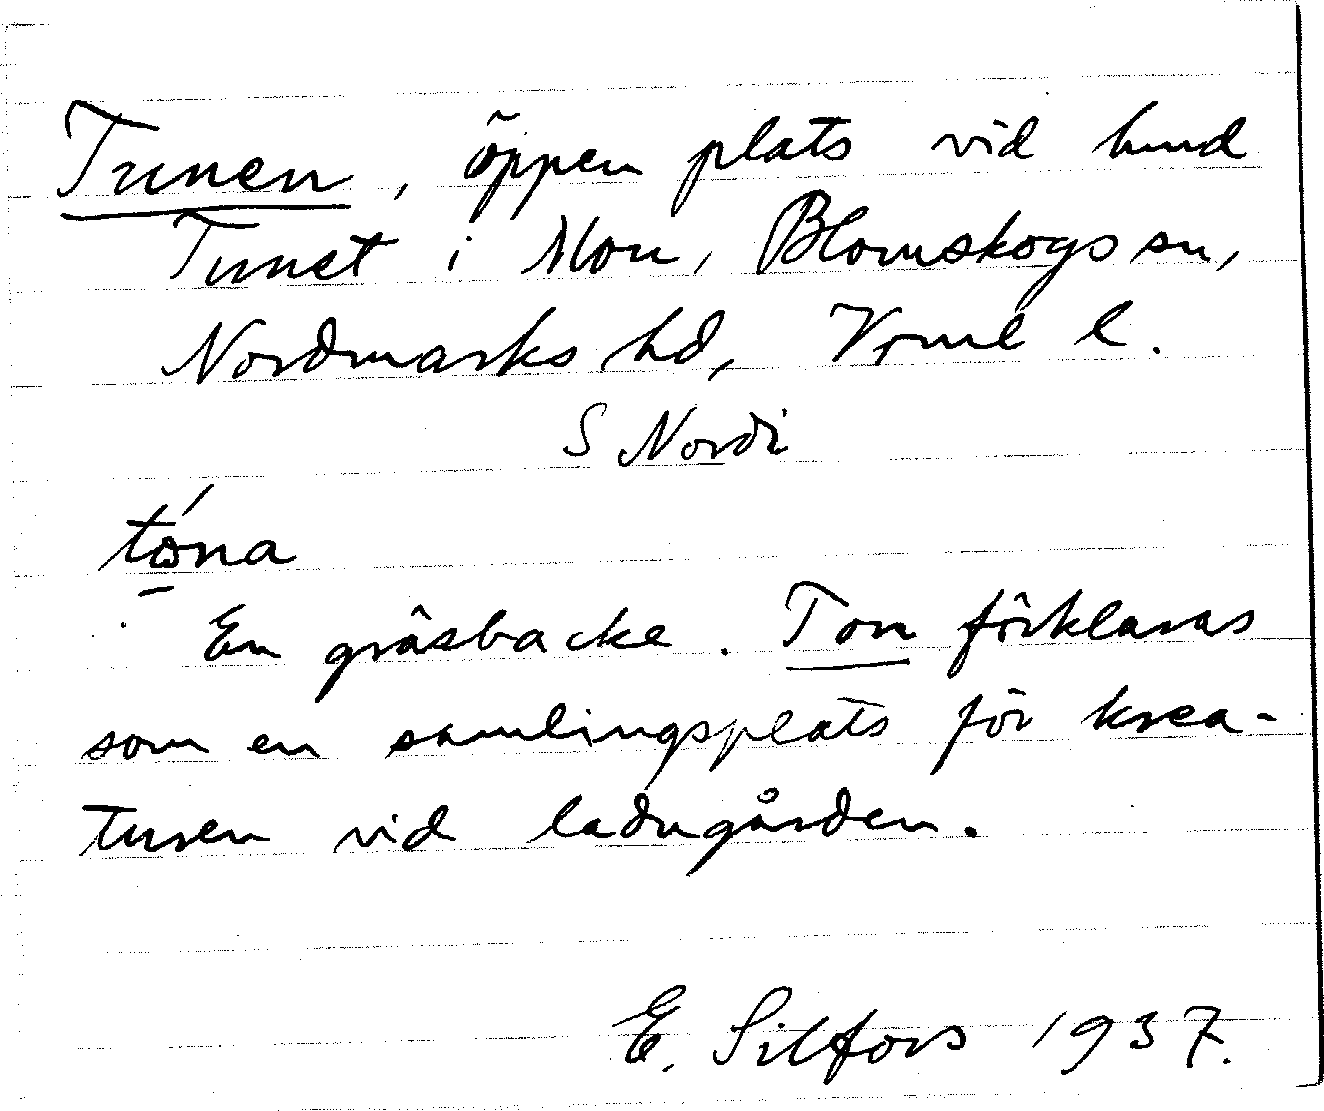 Tunen, öppen plats vid hmd
Tunet i Mon, Blomskogs sn,
Nordmarks hd, Vrml l.
S Nordi
tóna
En gräsbacke. Ton förklaras
som en samlingsplats för krea-
turen vid ladugården.
E. Silfors 1937.